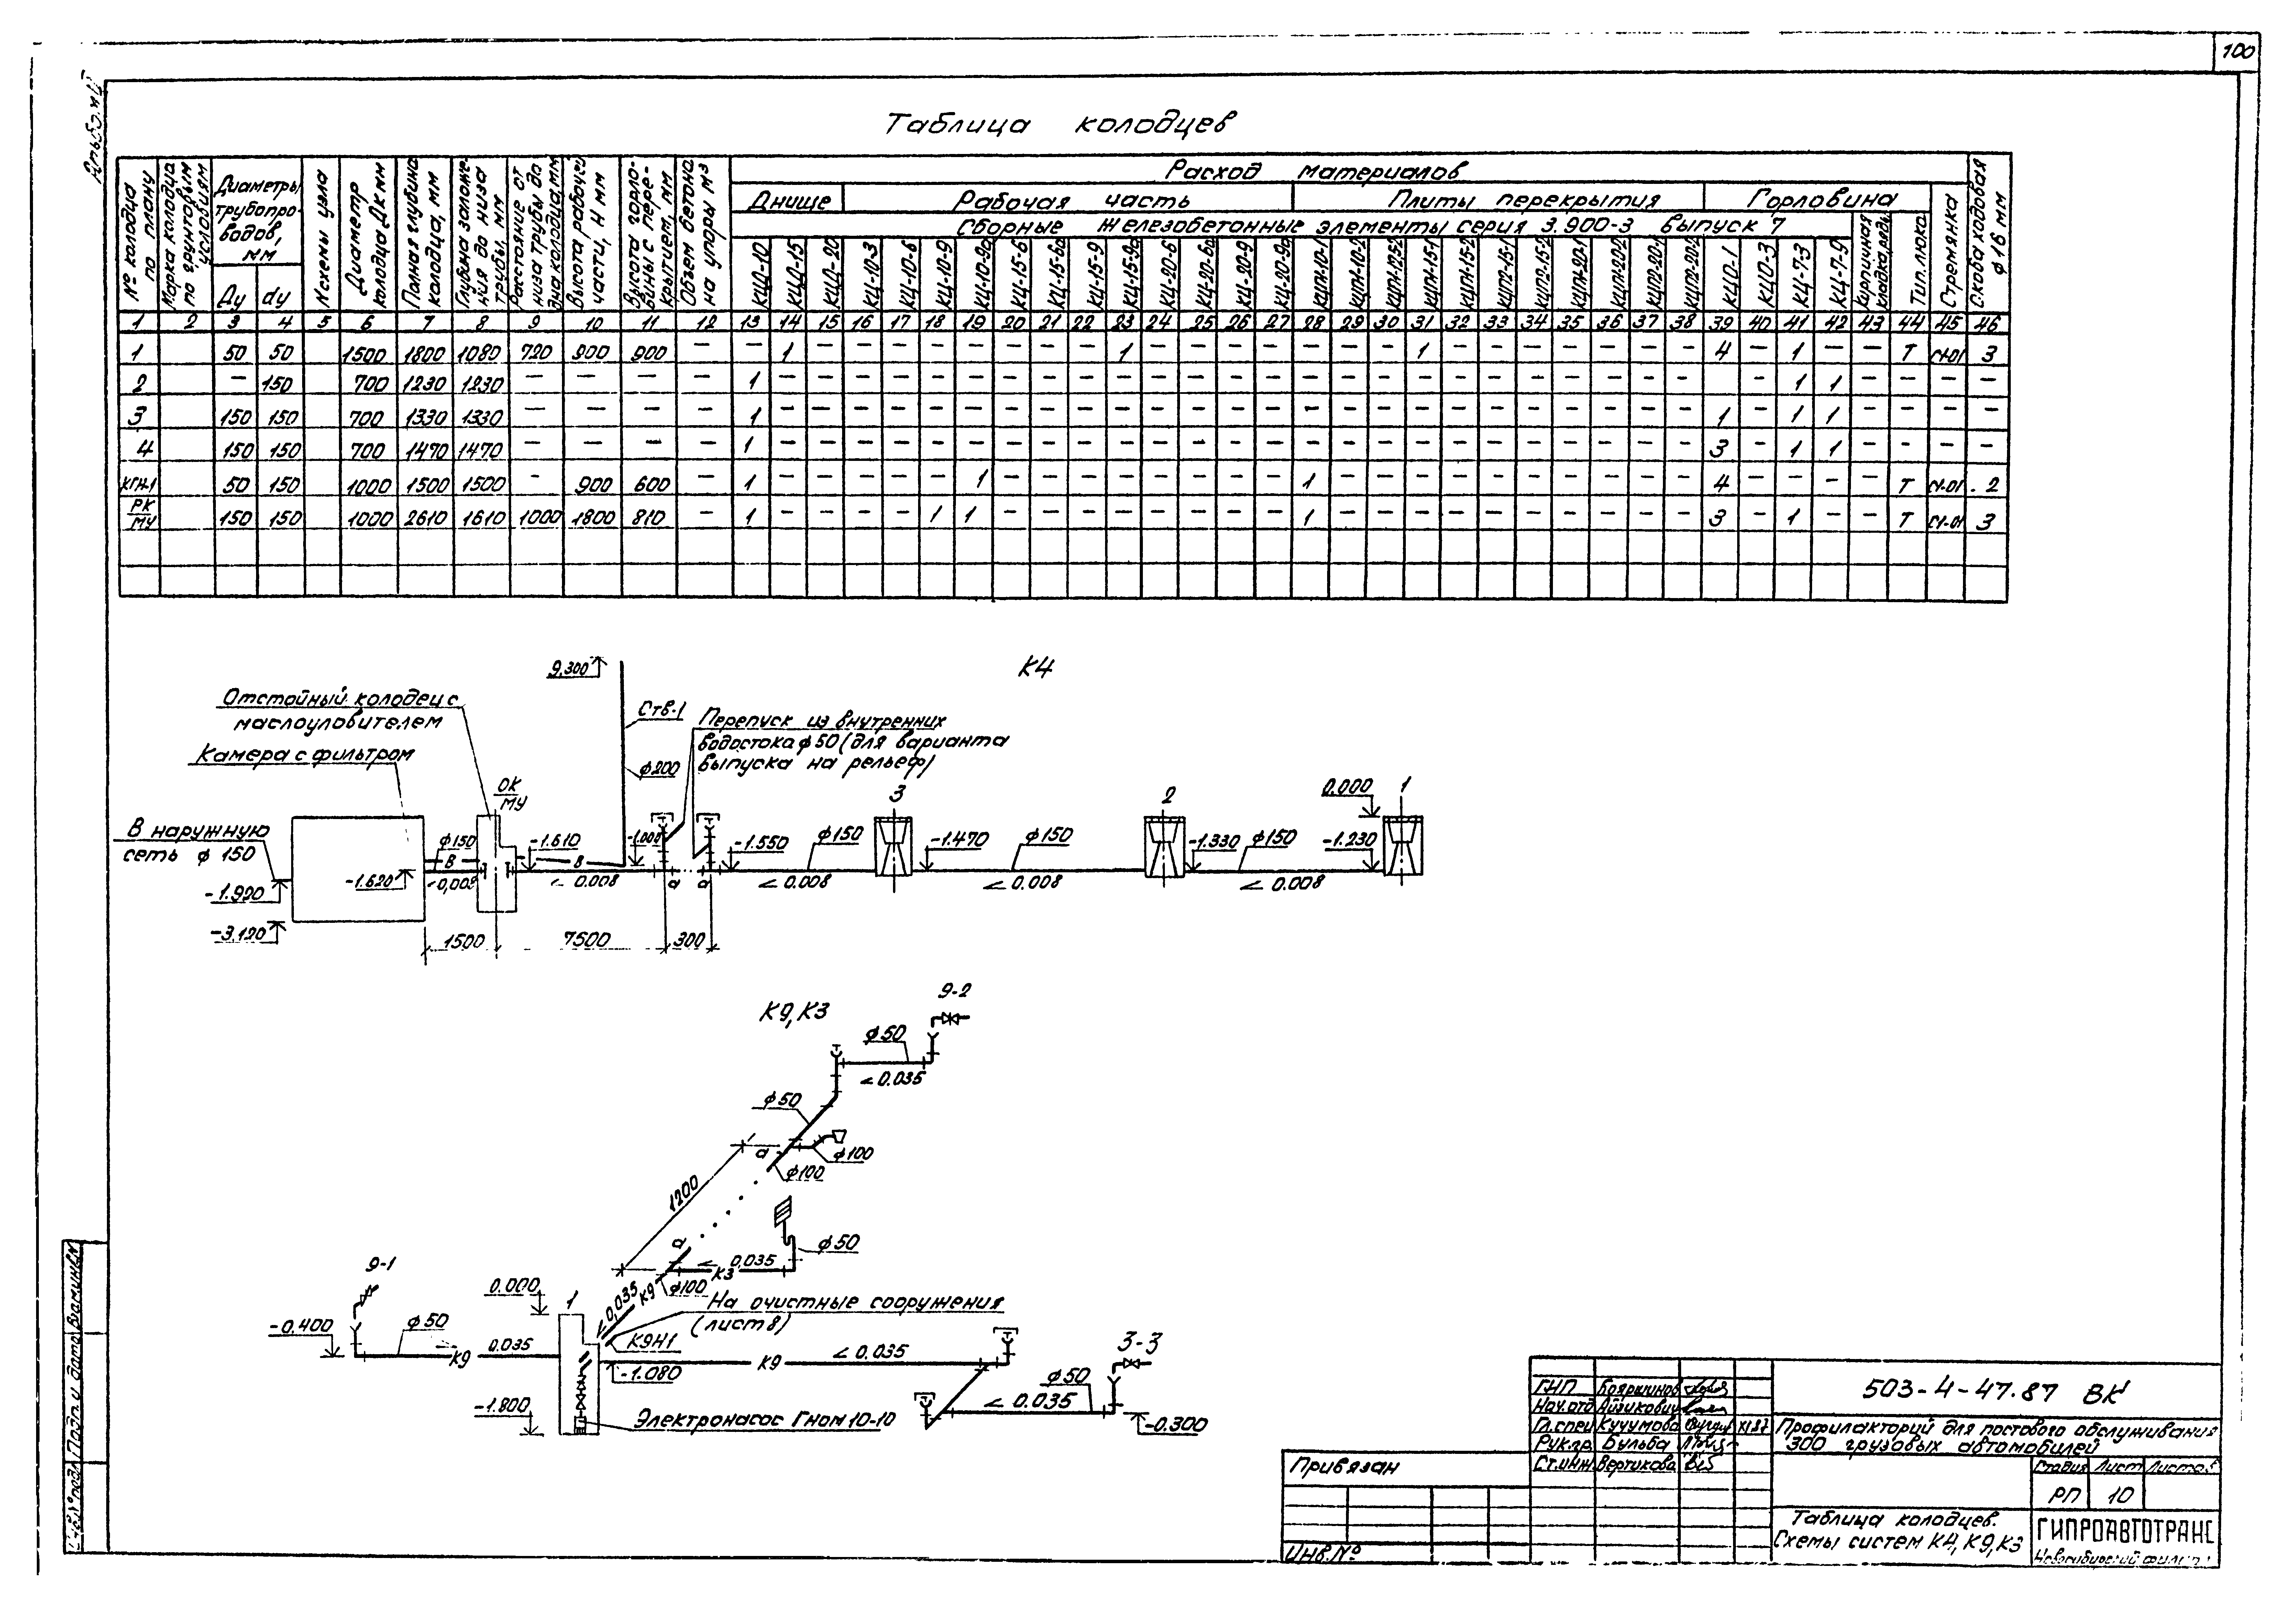 100
Таблица колодцев
№ колодца по плану
Марка колодца по грунтовым условиям
Диаметры трубопроводов, мм
Ду
dу
№ схемы узла
Диаметр колодца Дк мм
Полная глубина колодца, мм
Глубина заложения до низа трубы, мм
Расстояние от низа трубы до дна колодца мм
Высота рабочей части, Н мм
Высота горловины с перекрытием, мм
Объем бетона на упоры м3
Расход материалов
Днище
Рабочая часть
Плиты перекрытия
Горловина
Стремянка
Скоба ходовая ф 16 мм
Сборные железобетонные элементы серия 3.900-3 выпуск 7
Кирпичная кладка, ряды
Тип люка
КЦД-10 КЦД-15 КЦД-20 КЦ-10-3 КЦ-10-6 КЦ-10-9 КЦ-10-9а КЦ-15-6 КЦ-15-6а КЦ-15-9 КЦ-15-9а КЦ-20-6 КЦ-20-6а КЦ-20-9 КЦ-20-9а КЦП1-10-1 КЦП1-10-2 КЦП1-15-1 КЦП1-15-2 КЦП2-15-1 КЦП2-15-2 КЦП1-20-1 КЦП1-20-2 КЦП2-20-1 КЦП2-20-2 КЦО-1 КЦО-3 КЦ-7-3 КЦ-7-9
1 2 3 4 5 6 7 8 9 10 11 12 13 14 15 16 17 18 19 20 21 22 23 24 25 26 27 28 29 30 31 32 33 34 35 36 37 38 39 40 41 42 43 44 45 46
1 50 50 1500 1800 1080 720 900 900 — — 1 — — — — — — — — 1 — — — — — — — 1 — — — — — — — 4 — 1 — — Т С1-01 3
2 — 150 700 1230 1230 — — — — 1 — — — — — — — — — — — — — — — — — — — — — — — — — — 1 1 — — — —
3 150 150 700 1330 1330 — — — — 1 — — — — — — — — — — — — — — — — — — — — — — — — — — 1 — 1 1 — — — —
4 150 150 700 1470 1470 — — — — 1 — — — — — — — — — — — — — — — — — — — — — — — — — — 3 — 1 1 — — — —
КГН-1 50 150 1000 1500 1500 — 900 600 — 1 — — — — — 1 — — — — — — — — 1 — — — — — — — — — — 4 — — — — Т С1-01 2
РК/МУ 150 150 1000 2610 1610 1000 1800 810 — 1 — — — — 1 1 — — — — — — — — 1 — — — — — — — — — — 3 — 1 — — Т С1-01 3
К4
9.300
Отстойный колодец с
маслоуловителем
Камера с фильтром
Ств-1
Перепуск из внутренних
водостока ф 50 (для варианта
выпуска на рельеф)
ф200
ОК
МУ
В наружную
сеть ф 150
ф150
В
<0,008
-1.610
В
< 0.008
-1.000
а
а
-1.550
ф150
< 0.008
3
-1.470
ф150
< 0.008
2
-1.330
ф150
< 0.008
-1.230
0.000
1
-1.920
-1.620
-3.120
1500
7500
300
К9, К3
9-2
ф50
< 0.035
ф50
ф100
ф100
а
1200
ф50
а
< 0.035
К3
ф100
0,035
К9
9-1
0.000
1
На очистные сооружения
(лист 8)
К9Н1
-0.400
ф50
К9
0.035
К9
< 0.035
-1.080
3-3
ф50
< 0.035
-0.300
-1.800
Электронасос Гном 10-10
ГИП Бояршинов
Нач.отд Айзикович
Гл.спец Кучумова XI.87
Рук.гр. Бульба
Ст.инж. Вертикова
503-4-47.87 ВК
Профилакторий для постового обслуживания
300 грузовых автомобилей
Стадия Лист Листов
РП 10
Таблица колодцев.
Схемы систем К4, К9, К3
ГИПРОАВТОТРАНС
Новосибирский филиал
Привязан
Инв. №
Инв.№ подл. Подп. и дата Взам.инв.№